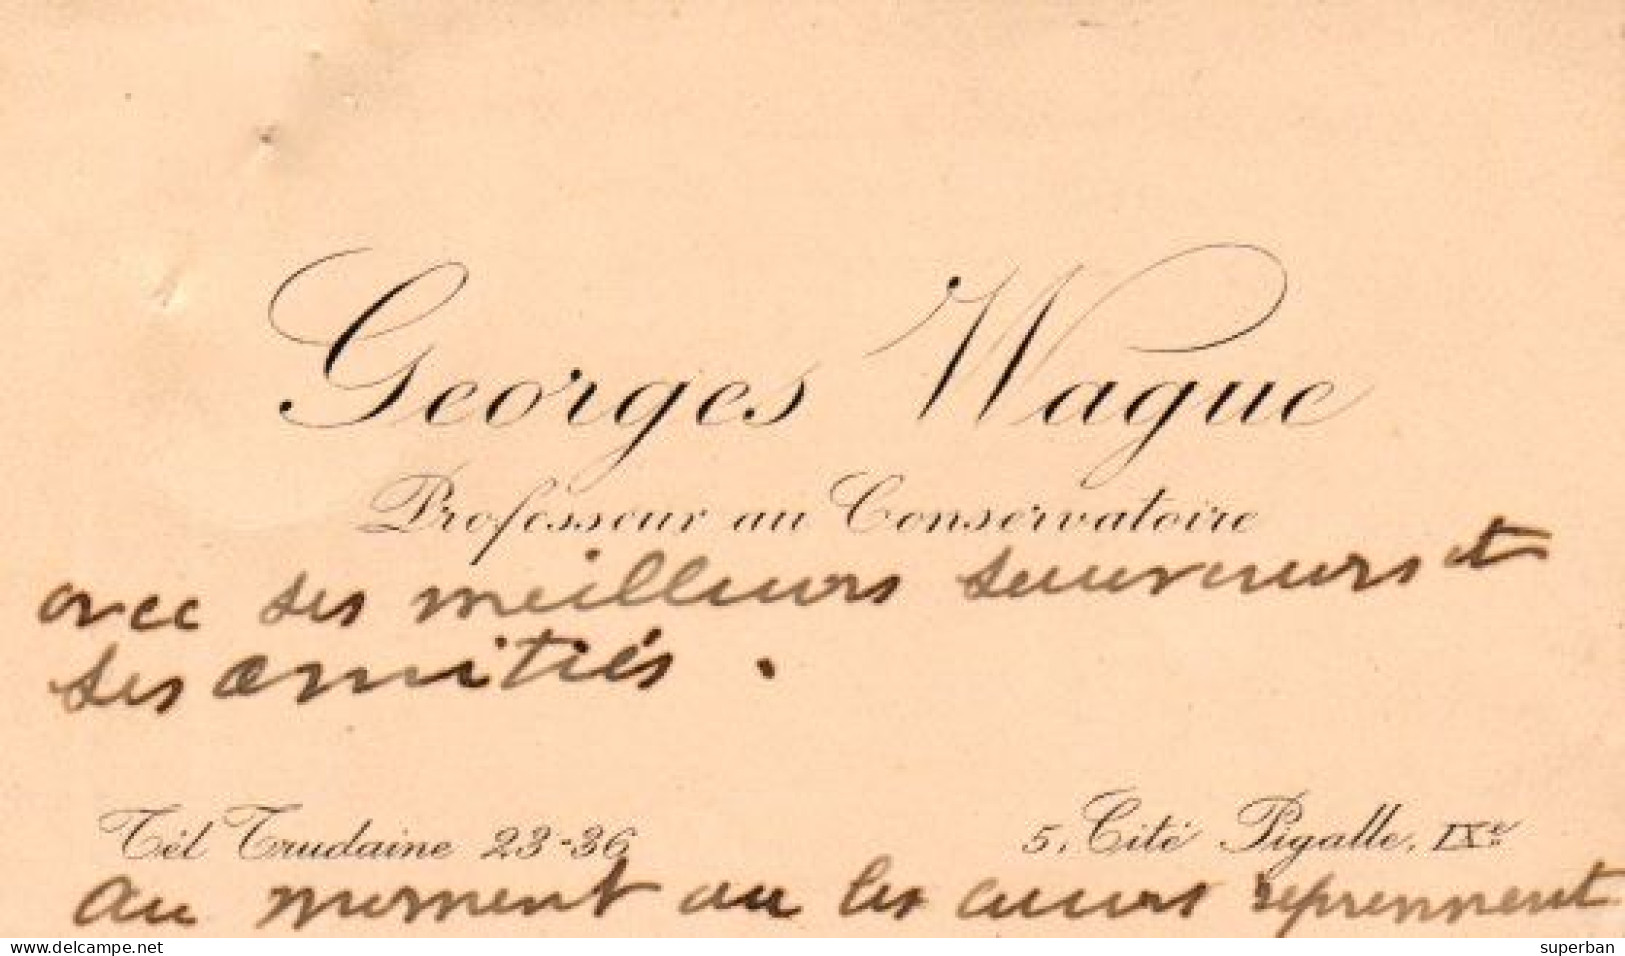 Georges Wague
Professeur au Conservatoire
avec ses meilleurs souvenirs et
ses amitiés.
Tél Trudaine 23-36
5, Cité Pigalle, IXe
au moment ou les cours reprennent
delcampe.net
superban